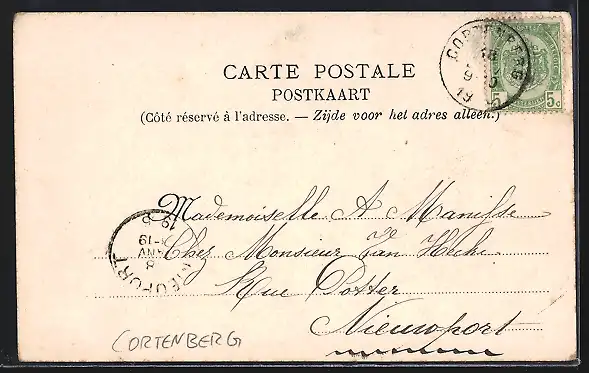 CARTE POSTALE
POSTKAART
(Côté réservé à l'adresse. — Zijde voor het adres alleen.)
CORTENBERG
5c 5c
Mademoiselle A Manisse
Chez Monsieur Van Hecke
Rue Potter
Nieuwport
NIEUPORT
CORTENBERG